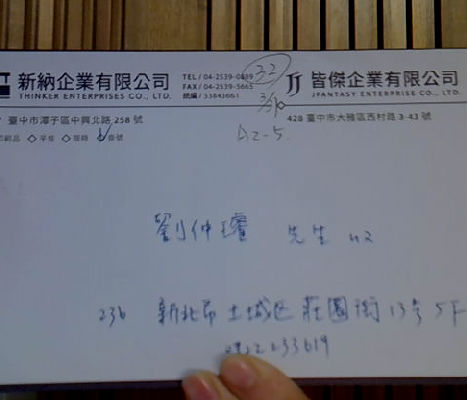 新納企業有限公司
THINKER ENTERPRISES CO., LTD.
TEL / 04-2539-0889
FAX / 04-2539-5665
32
皆傑企業有限公司
JFANTASY ENTERPRISE CO., LTD.
臺中市潭子區中興北路 258 號
428 臺中市大雅區西村路 3-43 號
印刷品 ◇平信 ◇限時 ◇掛號
A2-5
先生 收
236 新北市土城區莊園街13号5F